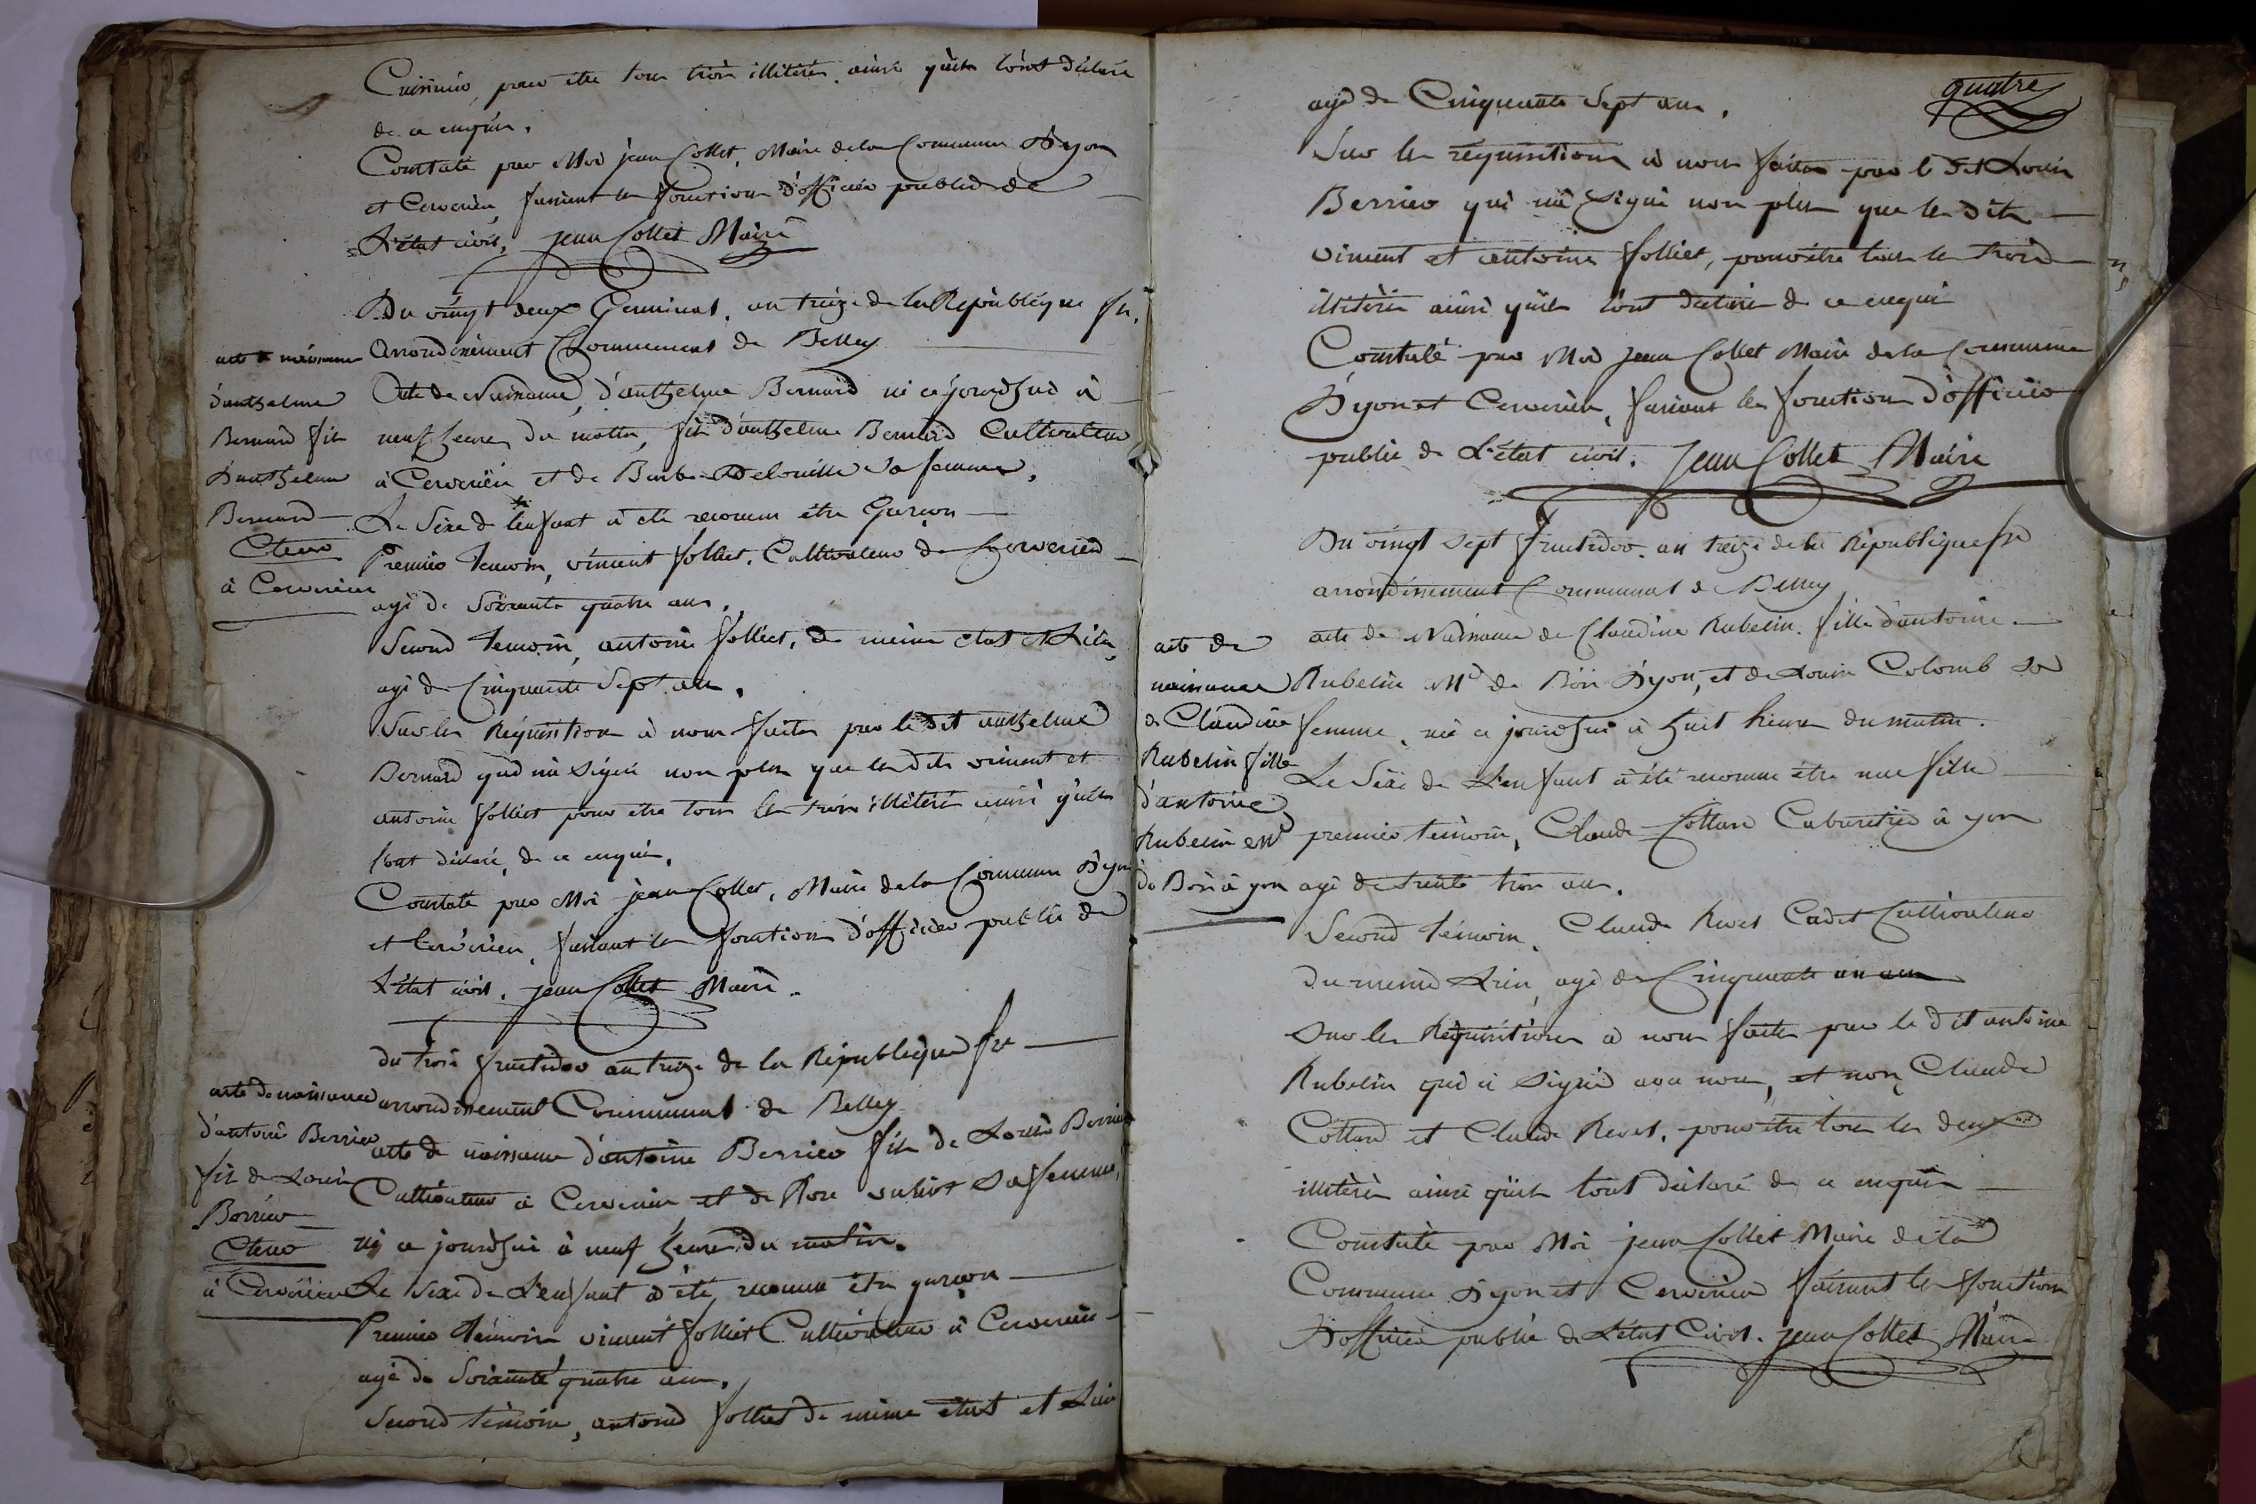 pour être tous trois illitérés, ainsi qu'ils l'ont déclaré
de ce enquis.
Constaté par Moi jean Collet, Maire de la Commune D'yon
et Cerverieu, faisant les fonctions d'officier public de
L'état civil. jean Collet Maire
Du vingt deux Germinal, an treize de la République fse.
Arrondissement Communal de Belley
acte de naissance
d'anthelme
Bernard fils
D'anthelme
Bernard
Cteur
à Cerverieu
Acte de Naissance, d'anthelme Bernard né ce jourdhui à
neuf heures du matin, fils d'anthelme Bernard Cultivateur
à Cerverieu et de Barbe Delouille sa femme.
Le Sexe de l'enfant à été reconnu être Garçon
Premier Temoin, vincent folliet, Cultivateur de Cerverieu
agé de Soixante quatre ans.
Second Temoin, antoine folliet, de même état et Lieu,
agé de Cinquante Sept ans.
Sur les Réquisition à nous faites par le dit anthelme
Bernard qui n'a Signé non plus que les dits vincent et
antoine folliet pour être tous les trois illitérés ainsi qu'ils
l'ont déclaré, de ce enquis.
Constaté par Moi jean Collet, Maire de la Commune D'yon
et Cerverieu, faisant les fonctions d'officier public de
L'état civil. jean Collet Maire.
du trois fructidor an treize de la République fse
arrondissement Communal de Belley
acte de naissance
d'antoine Berrier
fils de Louis
Berrier
Cteur
à Cerverieu
acte de naissance d'antoine Berrier fils de Louis Berrier
Cultivateur à Cerverieu et de Rose sa femme,
né ce jourdhui à neuf heures du matin.
Le Sexe de L'enfant à été reconnu être garçon
Premier Témoin, vincent folliet Cultivateur à Cerverieu
agé de Soixante quatre ans.
Second témoin, antoine folliet de même état et Lieu
quatre
agé de Cinquante Sept ans.
Sur les réquisitions à nous faites par le dit Louis
Berrier qui n'a Signé non plus que les dits
vincent et antoine folliet, pour être tous les trois
illitérés ainsi qu'ils l'ont déclaré de ce enquis
Constaté par Moi jean Collet Maire de la Commune
D'yon et Cerverieu, faisant les fonctions d'officier
public de L'état civil. jean Collet Maire
Du vingt sept fructidor, an treize de la République fse
arrondissement Communal de Belley
acte de
naissance
de Claudine
Rubelin fille
d'antoine
Rubelin Md
de Bois à yon
acte de Naissance de Claudine Rubelin, fille d'antoine
Rubelin Md de Bois D'yon, et de Louise Colomb sa
femme, née ce jourdhui à huit heures du matin.
Le Sexe de L'enfant à été reconnu être une fille
premier témoin, Claude Cottard Cabaretier à yon
agé de trente trois ans.
Second témoin, Claude Revet Cadet Cultivateur
du même Lieu, agé de Cinquante un ans
Sur les Réquisitions à nous faites par le dit antoine
Rubelin qui à Signé avec nous, et non Claude
Cottard et Claude Revet, pour être tous les deux
illitérés ainsi qu'ils l'ont déclaré de ce enquis
Constaté par Moi jean Collet Maire de la
Commune D'yon et Cerverieu faisant les fonctions
D'officier public de L'état Civil. jean Collet Maire